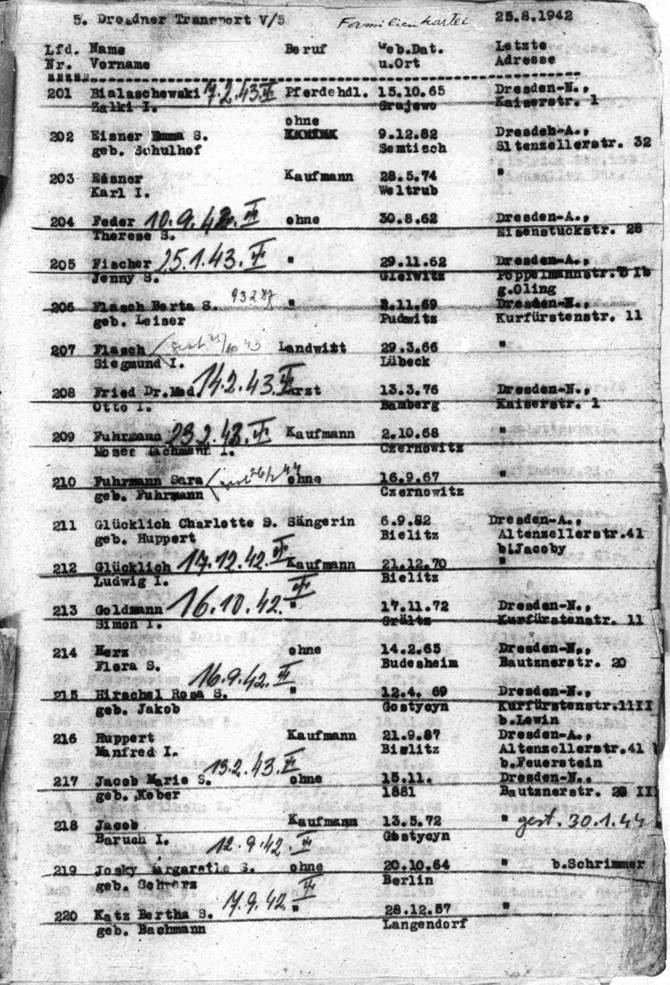 5. Dresdner Transport V/5 Familienkartei 25.8.1942
Lfd. Name Beruf Geb.Dat. Letzte
Nr. Vorname u.Ort Adresse
201 Bialaschewski 7.2.43 Pferdehdl. 15.10.65 Dresden-N.,
Zalki I. Grajewo Kaiserstr. 1
ohne
202 Eisner Emma S. 9.12.82 Dresdeh-A.,
geb. Schulhof Semtisch Sltenzellerstr. 32
203 Eisner Kaufmann 28.5.74 "
Karl I. Weltrub
204 Feder 10.9.42 ohne 30.8.62 Dresden-A.,
Therese S. Eisenstuckstr. 28
205 Fischer 25.1.43. " 29.11.62 Dresden-A.,
Jenny S. Gleiwitz Pöppelmannstr.
g.Oling
206 Flasch Berta S. " 11.69 Dresden-N.,
geb. Leiser Pudwitz Kurfürstenstr. 11
207 Flasch Landwitt 29.3.66 "
Siegmund I. Lübeck
208 Fried Dr.Med. 14.2.43. Arzt 13.3.76 Dresden-N.,
Otto I. Bamberg Kaiserstr. 1
209 Fuhrmann Kaufmann 2.10.68 "
Moser I. Czernowitz
210 Fuhrmann Sara ohne 16.9.67 "
geb. Fuhrmann Czernowitz
211 Glücklich Charlotte S. Sängerin 6.9.82 Dresden-A.,
geb. Huppert Bielitz Altenzellerstr.41
b.Jacoby
212 Glücklich 17.12.42. Kaufmann 21.12.70 "
Ludwig I. Bielitz
213 Goldmann 16.10.42. " 17.11.72 Dresden-N.,
Simon I. Kurfürstenstr. 11
214 Herz ohne 14.2.65 Dresden-N.,
Flora S. Budesheim Bautznerstr. 20
16.9.42.
215 Hirschel Rosa S. " 12.4. 69 Dresden-N.,
geb. Jakob Gostycyn Kurfürstenstr.11II
b.Lewin
216 Huppert Kaufmann 21.9.87 Dresden-A.,
Manfred I. Bielitz Altenzellerstr.41
13.2.43. b.Feuerstein
217 Jacob Marie S. ohne 15.11. Dresden-N.,
geb. Keber 1881 Bautznerstr. 20 II
218 Jacob Kaufmann 13.5.72 " gest. 30.1.44
Baruch I. Gostycyn
12.9.42.
219 Josky Margarethe S. ohne 20.10.64 " b.Schrimmer
geb. Berlin
17.9.42.
220 Katz Bertha S. " 28.12.57 "
geb. Bachmann Langendorf